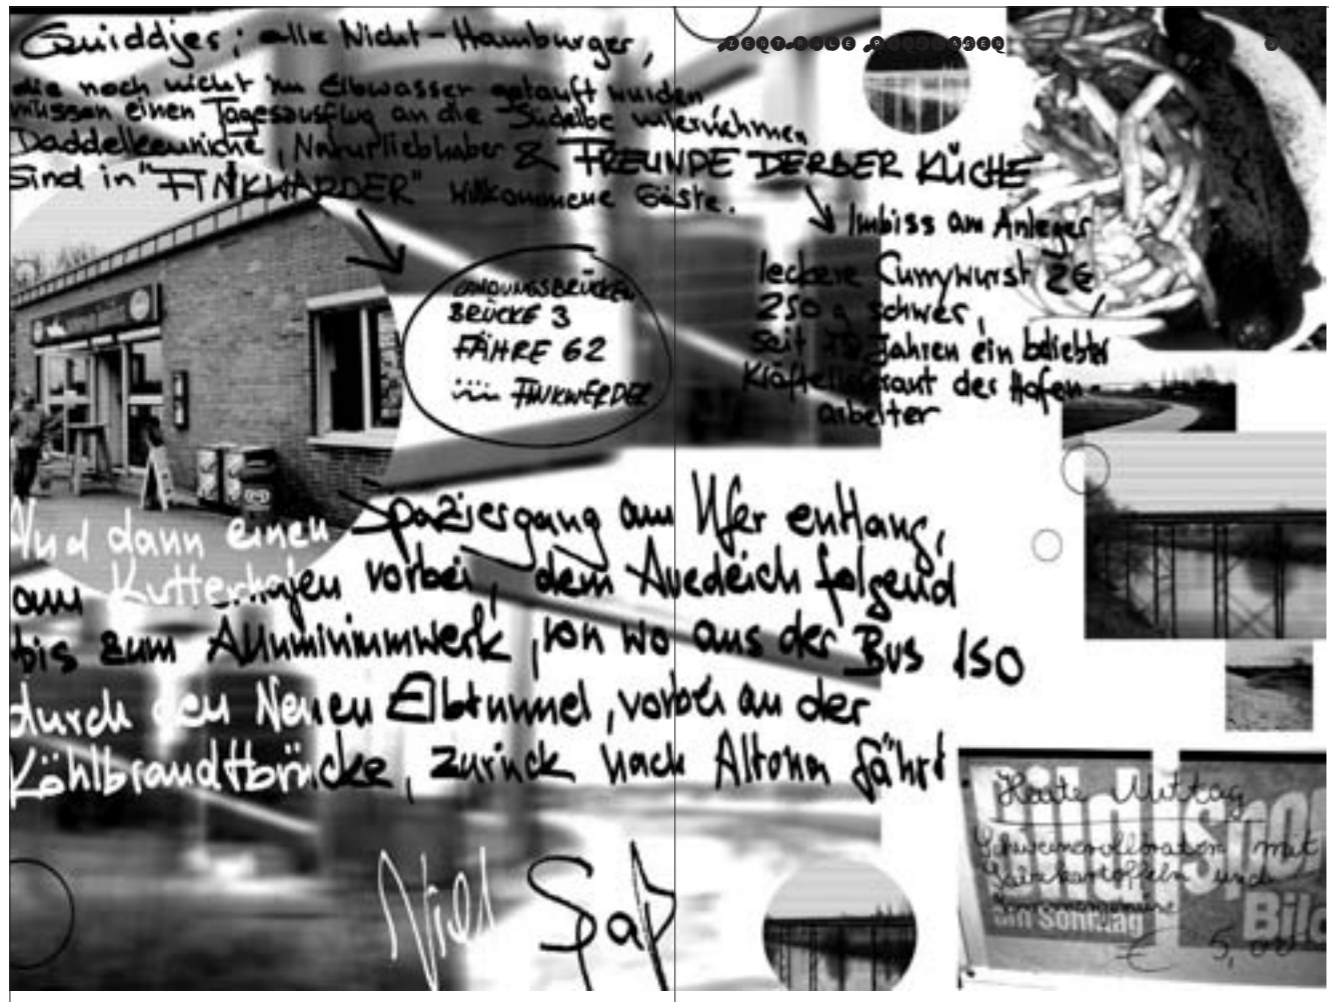 Quiddjes; alle Nicht-Hamburger,
die noch nicht im Elbwasser getauft wurden
müssen einen Tagesausflug an die Süderelbe unternehmen
Daddelkenniche, Naturliebhaber & FREUNDE DERBER KÜCHE
Sind in "FINKWARDER" willkommene Gäste.
LANDUNGSBRÜCKEN
BRÜCKE 3
FÄHRE 62
FINKWERDER
Imbiss am Anleger
leckere Currywurst 2€
250 g schwer,
seit Jahren ein beliebtes
der Hafen-
arbeiter
Und dann einen Spaziergang am Ufer entlang,
am Kutterhafen vorbei, dem Auedeich folgend
bis zum Alluminiumwerk, von wo aus der Bus 150
durch den Neuen Elbtunnel, vorbei an der
Köhlbrandtbrücke, zurück nach Altona fährt
Heute Mittag
Schweinerollbraten mit
Salzkartoffeln und
am Sonntag
Bild
€ 5,00